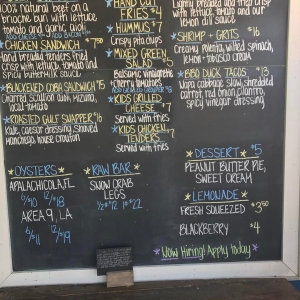 100% natural beef on a
brioche bun with lettuce
tomato and garlic aioli
ADD BACON $1
CHICKEN SANDWICH
hand breaded tenders fried
crisp with lettuce, tomato and
spicy buttermilk sauce
BLACKENED COBIA SANDWICH $15
charred scallion aioli, mizuna,
local tomato
ROASTED GULF SNAPPER $16
kale, caesar dressing, shaved
manchego, house crouton
HAND CUT
FRIES $4
HUMMUS $7
crispy pita chips
MIXED GREEN
SALAD
balsamic vinaigrette
cherry tomatoes
KIDS GRILLED
CHEESE $7
Served with fries
KIDS CHICKEN
TENDERS $7
served with fries
lettuce, tomato and our
lemon dill sauce
SHRIMP + GRITS $16
creamy polenta, wilted spinach,
lemon + tabasco cream
BBQ DUCK TACOS $13
napa cabbage slaw, shredded
carrot, red onion, cilantro,
spicy vinegar dressing
OYSTERS
APALACHICOLA, FL
6/10 12/18
AREA 9, LA
6/11 12/19
RAW BAR
SNOW CRAB
LEGS
1/2# $12 1# $22
DESSERT $5
PEANUT BUTTER PIE,
SWEET CREAM
LEMONADE
FRESH SQUEEZED $3.50
BLACKBERRY $4
Now Hiring! Apply Today